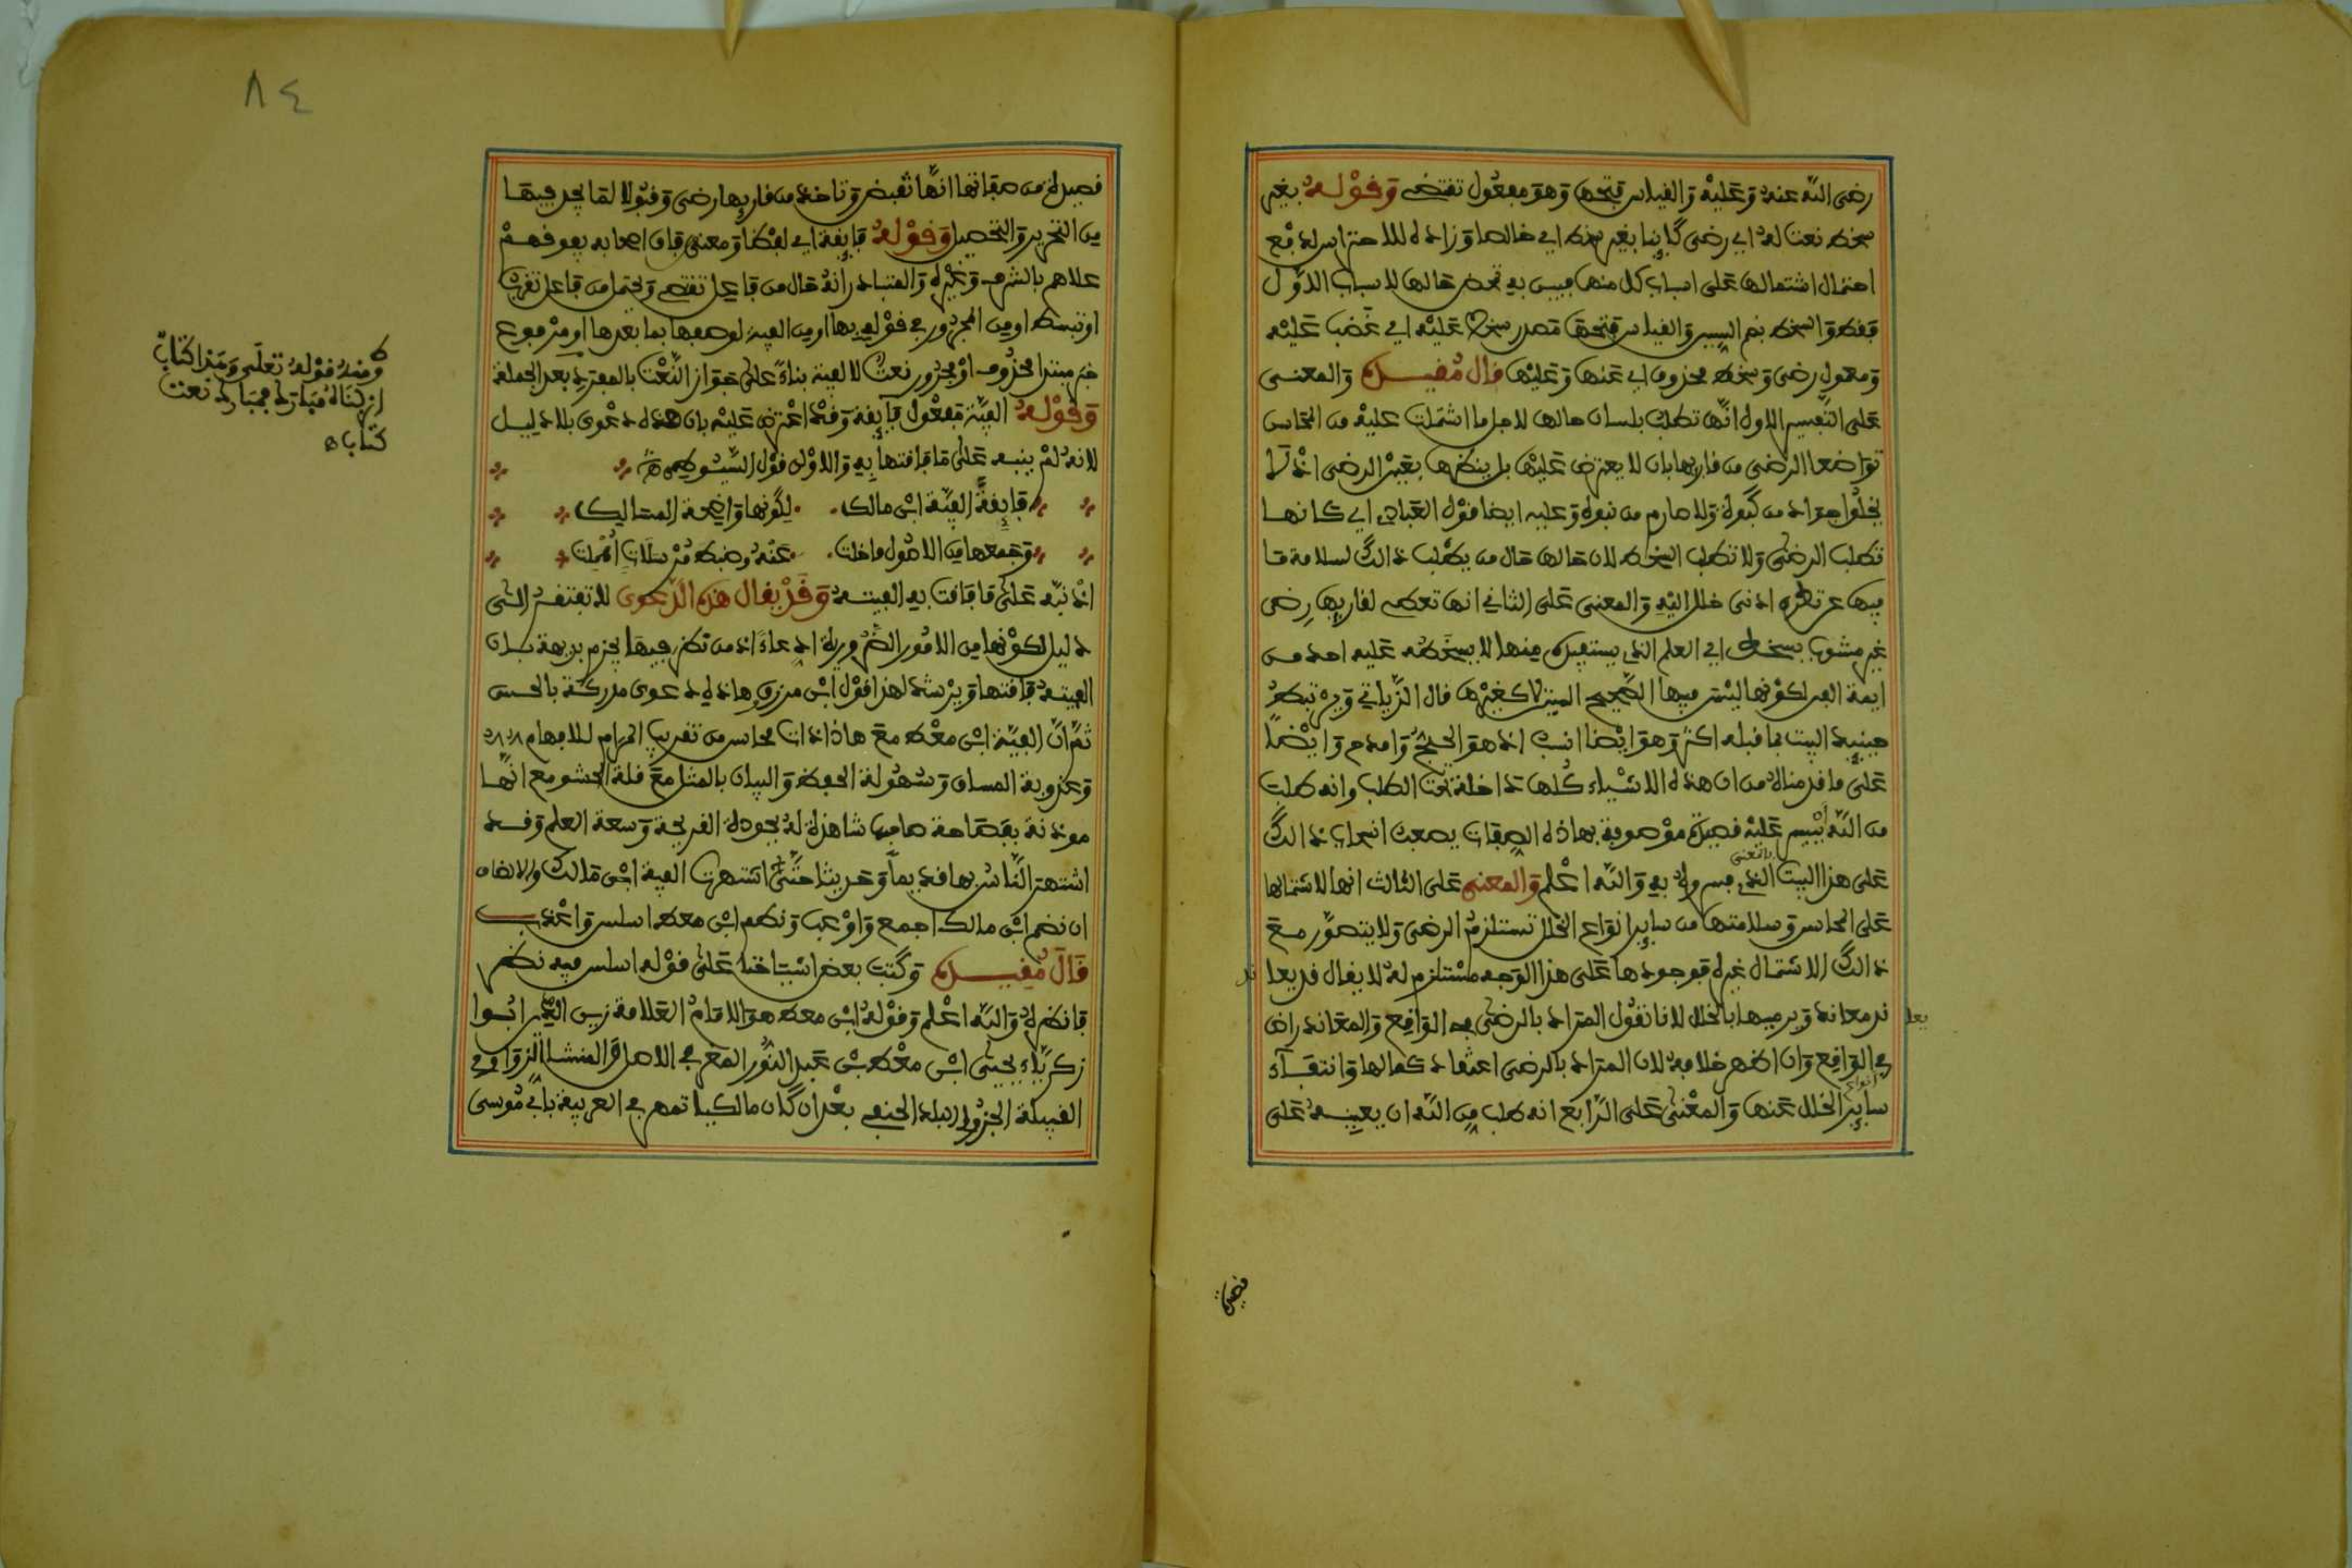 رضى الله عنه وعليه والقياس فتحها وهو مفعول تقتضى وقوله بغير
سخط نعت له اي رضى كاينا بغير سخط اي خالصا وزاده للاحتراس لدفع
احتمال اشتمالها على اسباب كل منها فبين به تمحض حالها للاسباب الاول
فقط والسخط بضم السين والقياس فتحها مصدر سخط عليه اي غضب عليه
ومعمول رضى وسخط محذوف اي عنها وعليها قال مقيده والمعنى
على التفسير الاول انها تطلب بلسان حالها لاجل ما اشتملت عليه من المحاسن
تواضعا الرضى من قاربها بان لا يعترض عليها بل ينظرها بعين الرضى اذ لا
يخلوا جواد من كبوة ولا صارم من نبوة وعليه ايضا قوله العبادي اي كانها
تطلب الرضى ولا تطلب السخط لان حالها حال من يطلب ذالك لسلامة ما
فيها عن تطرق ادنى خلل اليه والمعنى على الثاني انها تعطى لقاربها رضى
غير مشوب بسخط اي العلم الذي يستفيده منها لا يسخطه عليه احد من
ايمة الفن لكونها ليس فيها الا الصحيح المبين لا كغيرها قال الزياتي ويرتبط
حينيذ البيت بما قبله اكثر وهو ايضا انسب اذ هو الحجج وامدح وايضا
على ما قدمناه من ان هذه الاشياء كلها داخلة تحت الطلب وانه طلب
من الله تيسير عليه قصيدة موصوفة بهاذه الصفات يصعب انسحاب ذالك
على هذا البيت الذي فسروه به والله اعلم والمعنى على الثالث انها لاشتمالها
بالمعنى
على المحاسن وسلامتها من ساير انواع الخلل تستلزم الرضى ولا يتصور مع
ذالك الاشتمال غيره فوجودها على هذا الوجه مستلزم له لا يقال قد يعا
ند معاند ويرميها بالخلل لانا نقول المراد بالرضى في الواقع والمعاند راض
في الواقع وان اظهر خلافه لان المراد بالرضى اعتقاد كمالها وانتفاء
ساير الخلل عنها والمعنى على الرابع انه طلب من الله ان يعينه على
انواع
ند
يعا
قصيدة
٨٤
قصيدة من صفاتها انها تقبض وتاخذ من قاربها رضى وقبولا لما يجد فيها
من التحرير والتحصيل وقوله فايقة اي لفظا ومعنى فان اصحابه يفوقهم
علاهم بالشرف وغيره والمتبادر انه حال من فاعل تقتضى ويحتمل من فاعل تقرب
او تبسط او من المجرور في قوله بها او من الفية لوصفها بما بعدها او مرفوع
خبر مبتدا محذوف او مجرور نعت لالفية بناء على جواز النعت بالمفرد بعد الجملة
وقوله الفية مفعول فايقة وقد اعترض عليه بان هذه دعوى بلا دليل
لانه لم ينبه على ما فاقتها به والاولى قول السيوطي
فايقة الفية ابن مالك لكونها واضحة المسالك
وجمعها من الاصول ما خلت عنه وضبط مرسلات اهملت
اذ نبه على ما فاقت به الفيته وقد يقال هذه الدعوى لا تفتقر الى
دليل لكونها من الامور الضرورية ادعاء اذ من نظر فيها يجزم بديهة بان
الفيته فاقتها ويرشد لهذا قول ابن مرزوق هاذه دعوى مدركة بالحس
ثم ان الفية ابن معط مع هاذا ذات محاسن من تقريب المرام للافهام
وعذوبة المساق وسهولة الحفظ والبيان بالمثل مع قلة الحشو مع انها
موذنة بفصاحة صاحبها شاهدة له بجودة القريحة وسعة العلم وقد
اشتهر الناس بها قديما وحديثا حتى اشتهرت الفية ابن مالك والانصاف
ان نضم ابن مالك اجمع واوعب ونظم ابن معط اسلس واعذب
قال مقيده وكتب بعض اشياخنا على قوله اسلس فيه نظر
فانظره والله اعلم وقوله ابن معط هو الامام العلامة زين الدين ابوا
زكرياء يحيى ابن معط بن عبد النور المغربي الاصل والمنشا الزواوي
القبيلة الجزولي البلد الحنفي بعد ان كان مالكيا تمهر في العربية بابي موسى
ومنه قوله تعلى وهذا كتاب
انزلناه مبارك فمبارك نعت
كتاب